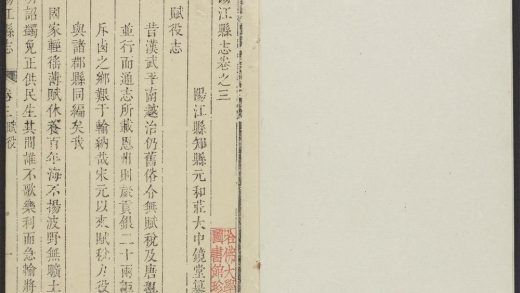 陽江縣志卷之三
陽江縣知縣元和莊大中鏡堂纂
賦役志
昔漢武平南越治仍舊俗今無賦稅及唐
並行而通志所載恩州則歲貢銀二十兩
斥鹵之鄉艱于輸納哉宋元以來賦稅力役
與諸郡縣同編矣我
國家輕徭薄賦休養百年海不揚波野無曠土
詔蠲免正供民生其間誰不歌樂利而急輸將
陽江縣志
卷三賦役
哈佛大學
圖書館珍